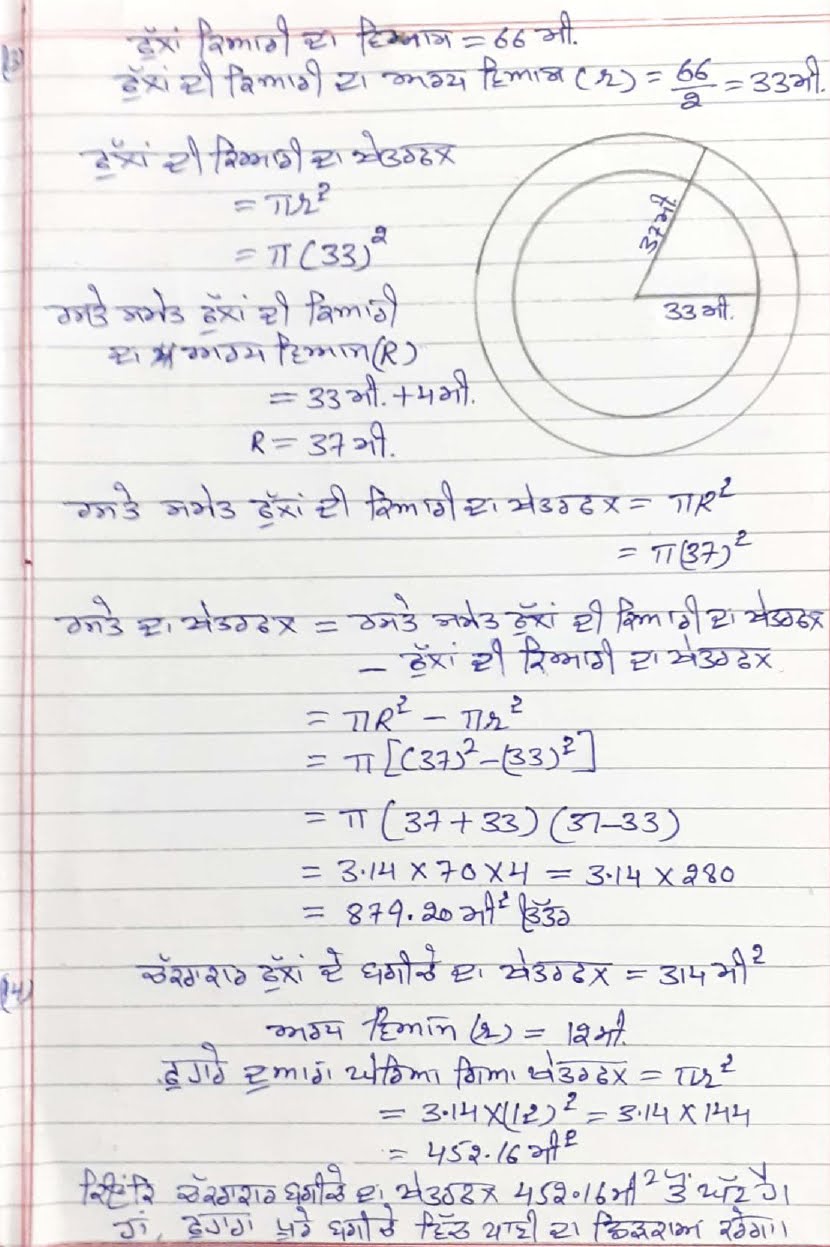 (13) ਫੁੱਲਾਂ ਕਿਆਰੀ ਦਾ ਵਿਆਸ = 66 ਮੀ.
ਫੁੱਲਾਂ ਦੀ ਕਿਆਰੀ ਦਾ ਅਰਧ ਵਿਆਸ (r) = 66/2 = 33ਮੀ.
ਫੁੱਲਾਂ ਦੀ ਕਿਆਰੀ ਦਾ ਖੇਤਰਫਲ
= πr²
= π(33)²
37ਮੀ.
33ਮੀ.
ਰਸਤੇ ਸਮੇਤ ਫੁੱਲਾਂ ਦੀ ਕਿਆਰੀ
ਦਾ ਅਰਧ ਵਿਆਸ(R)
= 33ਮੀ. + 4ਮੀ.
R = 37ਮੀ.
ਰਸਤੇ ਸਮੇਤ ਫੁੱਲਾਂ ਦੀ ਕਿਆਰੀ ਦਾ ਖੇਤਰਫਲ = πR²
= π(37)²
ਰਸਤੇ ਦਾ ਖੇਤਰਫਲ = ਰਸਤੇ ਸਮੇਤ ਫੁੱਲਾਂ ਦੀ ਕਿਆਰੀ ਦਾ ਖੇਤਰਫਲ
– ਫੁੱਲਾਂ ਦੀ ਕਿਆਰੀ ਦਾ ਖੇਤਰਫਲ
= πR² – πr²
= π[(37)² – (33)²]
= π (37 + 33) (37–33)
= 3.14 × 70 × 4 = 3.14 × 280
= 879.20 ਮੀ² ਉੱਤਰ
(14) ਚੱਕਰਾਕਾਰ ਫੁੱਲਾਂ ਦੇ ਬਗੀਚੇ ਦਾ ਖੇਤਰਫਲ = 314 ਮੀ²
ਅਰਧ ਵਿਆਸ (r) = 12ਮੀ.
ਫੁਹਾਰੇ ਦੁਆਰਾ ਘੇਰਿਆ ਗਿਆ ਖੇਤਰਫਲ = πr²
= 3.14×(12)² = 3.14 × 144
= 452.16 ਮੀ²
ਕਿਉਂਕਿ ਚੱਕਰਾਕਾਰ ਬਗੀਚੇ ਦਾ ਖੇਤਰਫਲ 452.16ਮੀ² ਤੋਂ ਘੱਟ ਹੈ।
ਹਾਂ, ਫੁਹਾਰਾ ਪੂਰੇ ਬਗੀਚੇ ਵਿੱਚ ਪਾਣੀ ਦਾ ਛਿੜਕਾਅ ਕਰੇਗਾ।